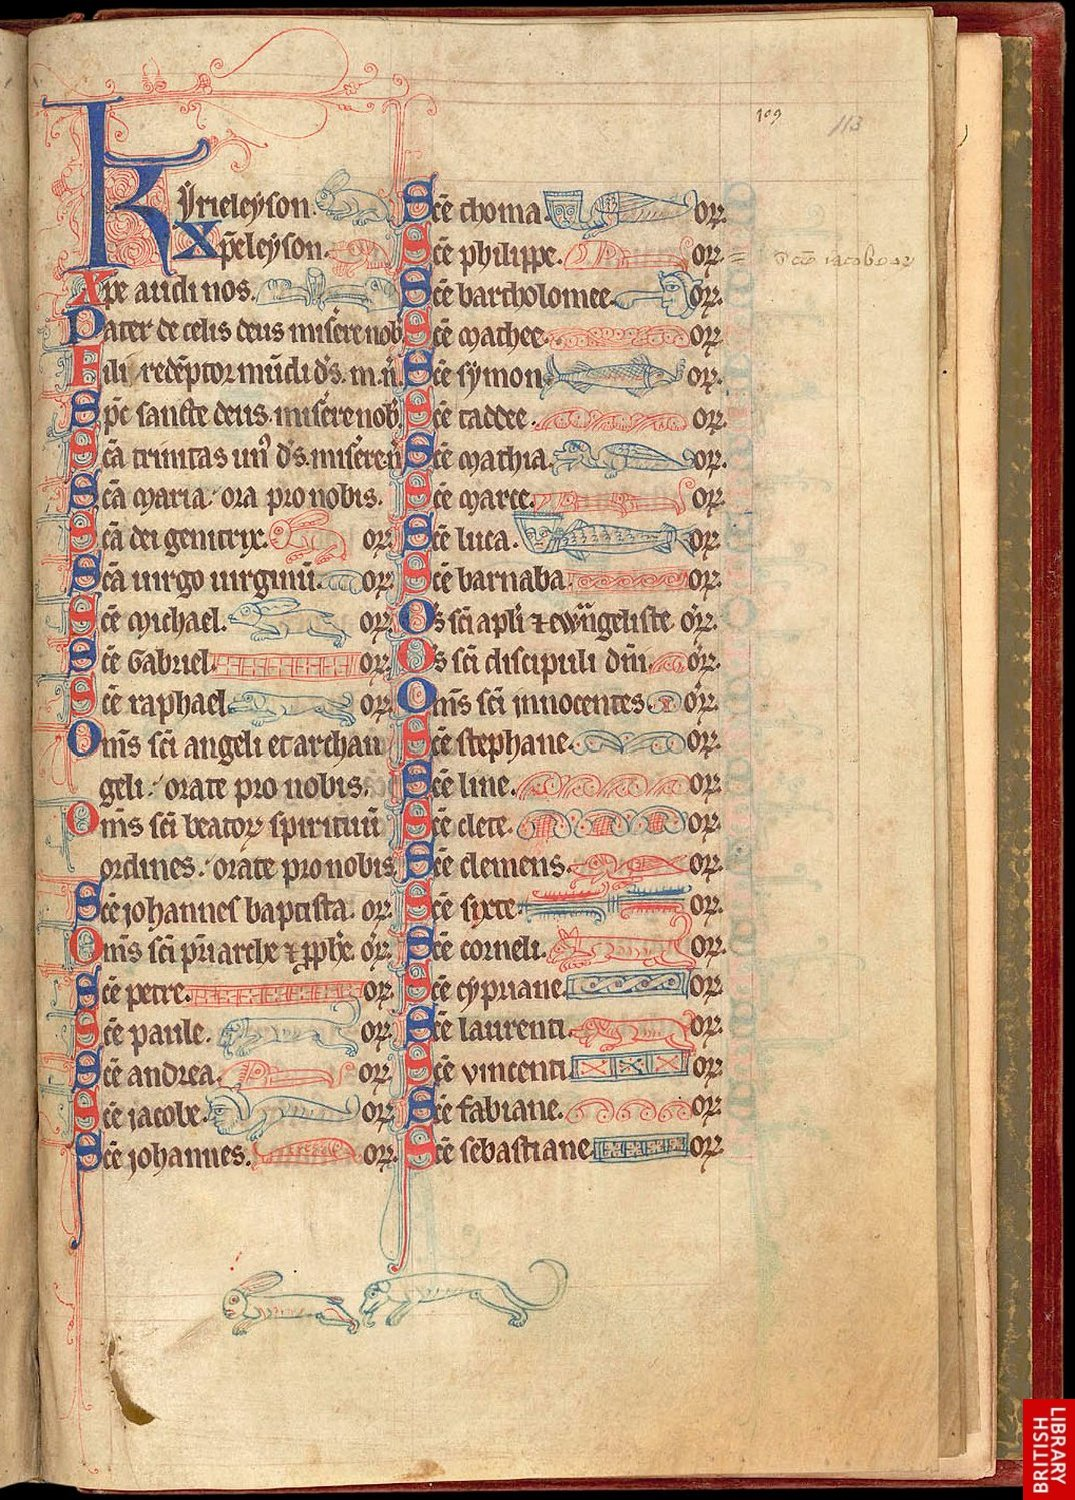 109
113
Kyrieleyson.
Xp̄eleyson.
Xpe audi nos.
Pater de celis deus miserenob̄
Fili redēptor mūdi d̄s. m. n̄.
Sp̄c sancte deus. miserenob̄.
Sc̄a trinitas un⁹ d̄s. miseren̄
Sc̄a maria. ora pro nobis.
Sc̄a dei genitrix. or̄.
Sc̄a uirgo uirginū. or̄.
Sc̄e michael. or̄.
Sc̄e Gabriel. or̄.
Sc̄e raphael. or̄.
Om̄s sc̄i angeli et archan
geli. orate pro nobis.
Om̄s sc̄i beatoꝝ spirituū
ordines. orate pro nobis
Sc̄e johannes baptista. or̄.
Om̄s sc̄i p̄riarche ⁊ ꝓph̄e. or̄.
Sc̄e petre. or̄.
Sc̄e paule. or̄.
Sc̄e andrea. or̄.
Sc̄e jacobe. or̄.
Sc̄e johannes. or̄.
Sc̄e thoma. or̄.
Sc̄e philippe. or̄. = Sc̄e iacobe or
Sc̄e bartholomee. or̄.
Sc̄e mathee. or̄.
Sc̄e symon. or̄.
Sc̄e taddee. or̄.
Sc̄e mathia. or̄.
Sc̄e marce. or̄.
Sc̄e luca. or̄.
Sc̄e barnaba. or̄.
Om̄s sc̄i apl̄i ⁊ ewāngeliste or̄.
Om̄s sc̄i discipuli dn̄i. or̄.
Om̄s sc̄i innocentes or̄.
Sc̄e stephane. or̄.
Sc̄e line. or̄.
Sc̄e clete. or̄.
Sc̄e clemens. or̄.
Sc̄e sixte. or̄.
Sc̄e corneli. or̄.
Sc̄e cypriane. or̄.
Sc̄e laurenti. or̄.
Sc̄e vincenti. or̄.
Sc̄e fabiane. or̄.
Sc̄e sebastiane. or̄.
BRITISH
LIBRARY